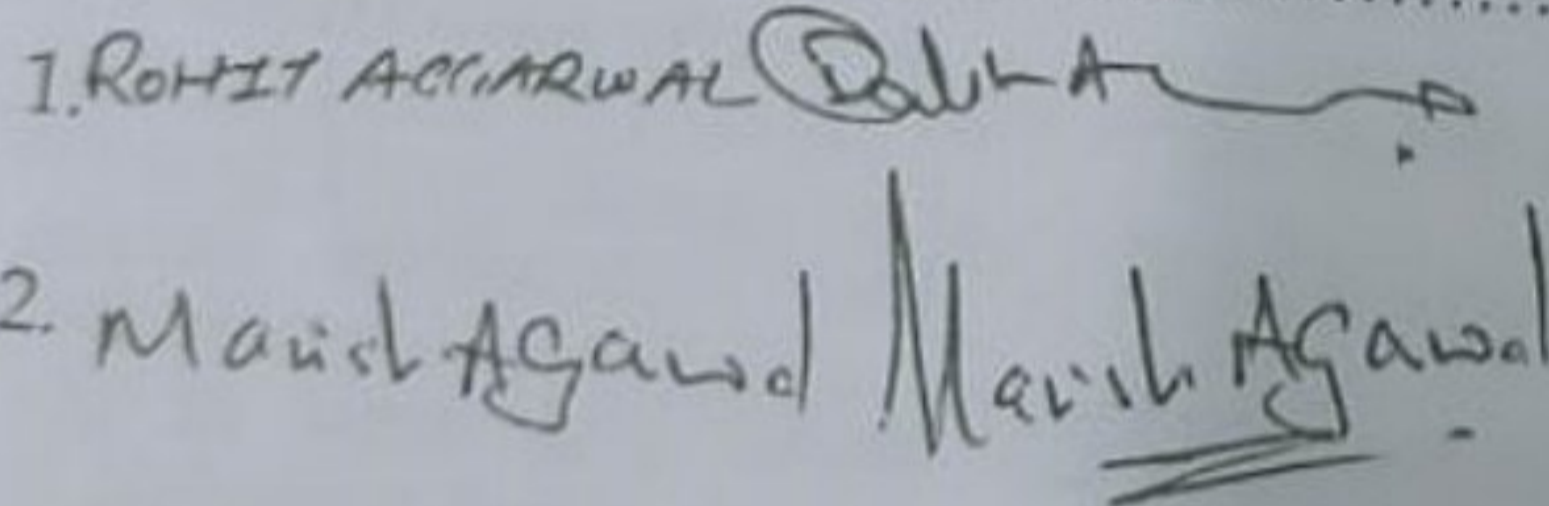 1. ROHIT AGGARWAL
2. Manish Agarwal Manish Agarwal